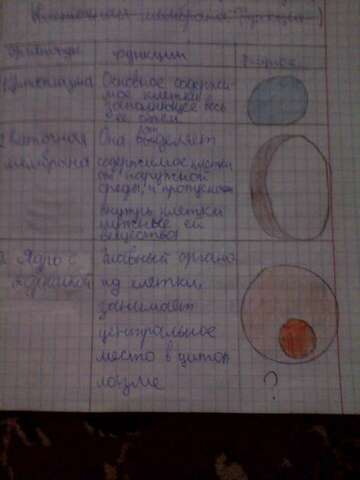 функции
рисунок
Цитоплазма
Основное содержи-
мое клетки
заполняющее весь
её объём
клеточная
мембрана
Она отделяет
содержимое клетки
от наружной
среды, и пропускает
внутрь клетки
нужные ей
вещества
Ядро с
Главный органо
ид клетки,
занимает
центральное
место в цитоп
лазме
?